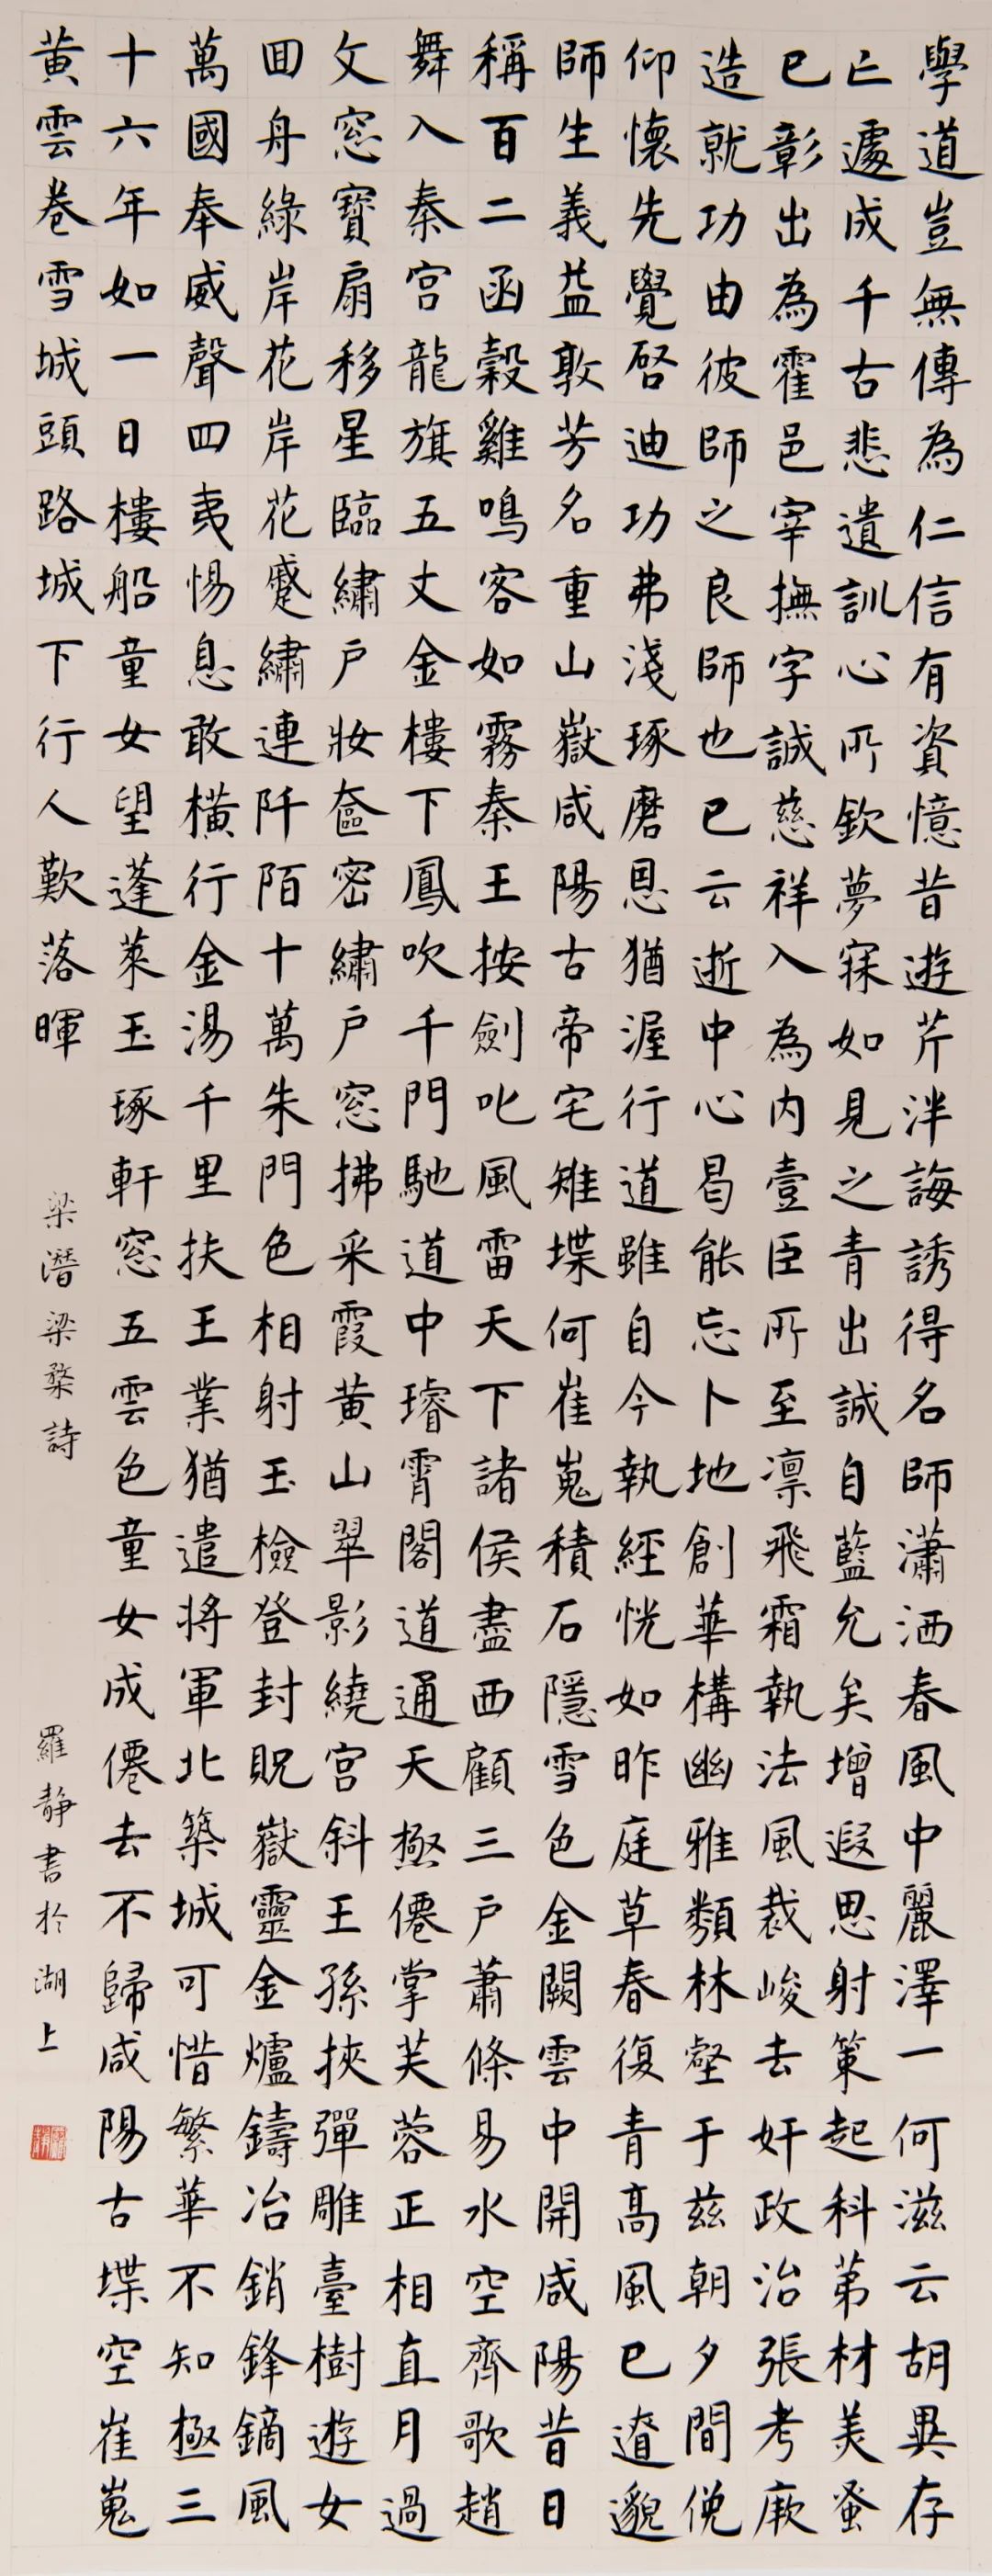 學道豈無傳為仁信有資憶昔遊芹泮誨誘得名師瀟洒春風中麗澤一何滋云胡異存
亡遽成千古悲遺訓心所欽夢寐如見之青出誠自藍允矣增遐思射策起科第材美蚤
已彰出為霍邑宰撫字誠慈祥入為内壹臣所至凛飛霜執法風裁峻去奸政治張考厥
造就功由彼師之良師也已云逝中心曷能忘卜地創華構幽雅類林壑于兹朝夕間俛
仰懷先覺啓迪功弗淺琢磨恩猶渥行道雖自今執經恍如昨庭草春復青高風已遼邈
師生義益敦芳名重山嶽咸陽古帝宅雉堞何崔嵬積石隱雪色金闕雲中開咸陽昔日
稱百二函穀雞鳴客如霧秦王按劍叱風雷天下諸侯盡西顧三户蕭條易水空齊歌趙
舞入秦宫龍旗五丈金樓下鳳吹千門馳道中璿霄閣道通天極僊掌芙蓉正相直月過
文窓寶扇移星臨繡户妝奩密繡户窓拂采霞黄山翠影繞宫斜王孫挾彈雕臺樹遊女
回舟綠岸花岸花蹙繡連阡陌十萬朱門色相射玉檢登封貺嶽靈金爐鑄冶銷鋒鏑風
萬國奉威聲四夷惕息敢橫行金湯千里扶王業猶遣將軍北築城可惜繁華不知極三
十六年如一日樓船童女望蓬萊玉琢軒窓五雲色童女成僊去不歸咸陽古堞空崔嵬
黄雲卷雪城頭路城下行人歎落暉
梁潛梁楘詩
羅靜書於湖上